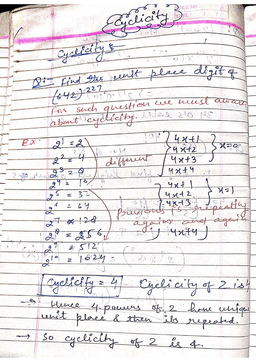 Cyclicity
Cyclicity :
Q:- Find the unit place digit of
(642)²²⁷
For such question we must aware
about cyclicity.
Ex:
2¹ = 2
2² = 4
2³ = 8
2⁴ = 16
2⁵ = 32
2⁶ = 64
2⁷ = 128
2⁸ = 256
2⁹ = 512
2¹⁰ = 1024
different
4x+1
4x+2
4x+3
4x+4
x=0
4x+1
4x+2
4x+3
4x+4
x=1
Previous is repeating
again and again
Cyclicity = 4 Cyclicity of 2 is 4
→ Hence 4 powers of 2 have unique
unit place & then its repeated.
→ So cyclicity of 2 is 4.